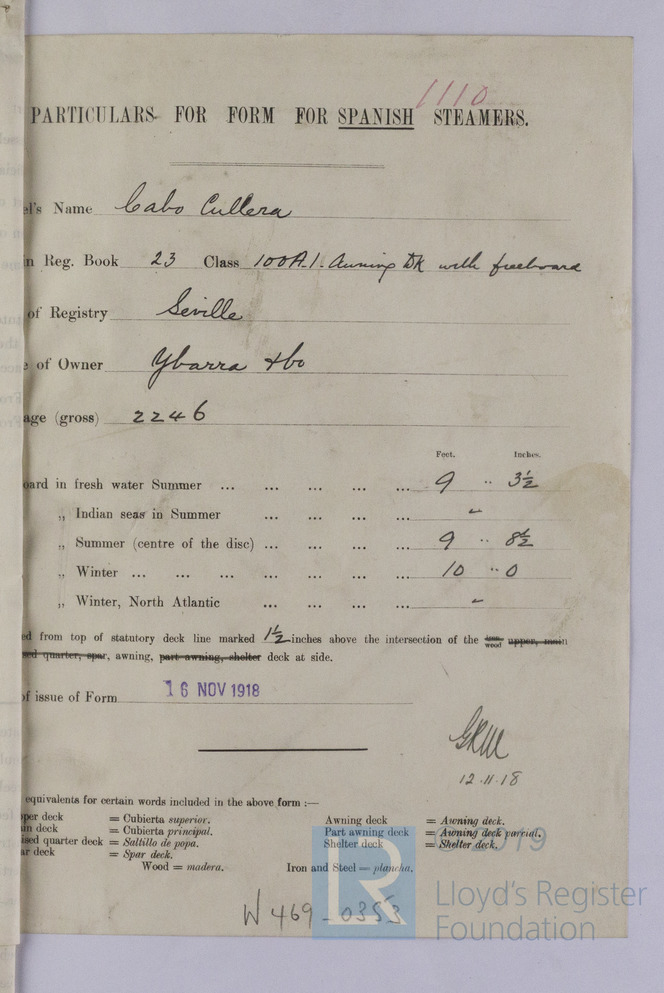 1110
PARTICULARS FOR FORM FOR SPANISH STEAMERS.
el's Name Cabo Cullera
n Reg. Book 23 Class 100A.1. Awning Dk with freeboard
of Registry Seville
e of Owner Ybarra & Co
age (gross) 2246
Feet. Inches.
oard in fresh water Summer ... ... ... ... ... 9 " 3½
„ Indian seas in Summer ... ... ... ... "
„ Summer (centre of the disc) ... ... ... ... 9 " 8½
„ Winter ... ... ... ... ... ... ... 10 " 0
„ Winter, North Atlantic ... ... ... ... "
ed from top of statutory deck line marked 1½ inches above the intersection of the iron wood upper, main
sed quarter, spar, awning, part awning, shelter deck at side.
of issue of Form 16 NOV 1918
12.11.18
equivalents for certain words included in the above form :—
per deck = Cubierta superior. Awning deck = Awning deck.
in deck = Cubierta principal. Part awning deck = Awning deck parcial.
ised quarter deck = Saltillo de popa. Shelter deck = Shelter deck.
ar deck = Spar deck.
Wood = madera. Iron and Steel = plancha.
W469-0353
2019
LR
Lloyd's Register
Foundation